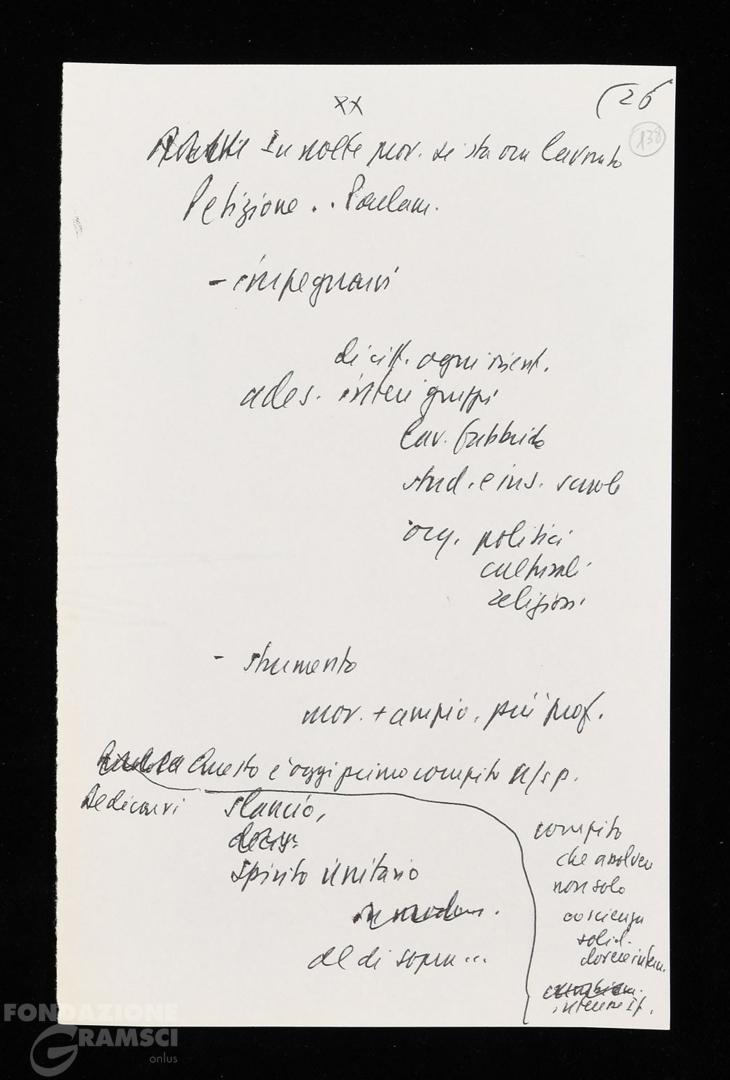 xx
(26
138
In molte prov. si sta ora lavorando
Petizione . . Parlam.
- impegnarvi
di citt. ogni orient.
ades. interi gruppi
lav. fabbriche
stud. e ins. scuole
org. politici
culturali
religiosi
- strumento
mov. + ampio, più prof.
Questo è oggi primo compito n/sp.
Dedicarvi slancio,
spirito unitario
al di sopra...
compito
che assolvere
non solo
coscienza
solid.
dovere intern.
interesse It.
FONDAZIONE
GRAMSCI
onlus